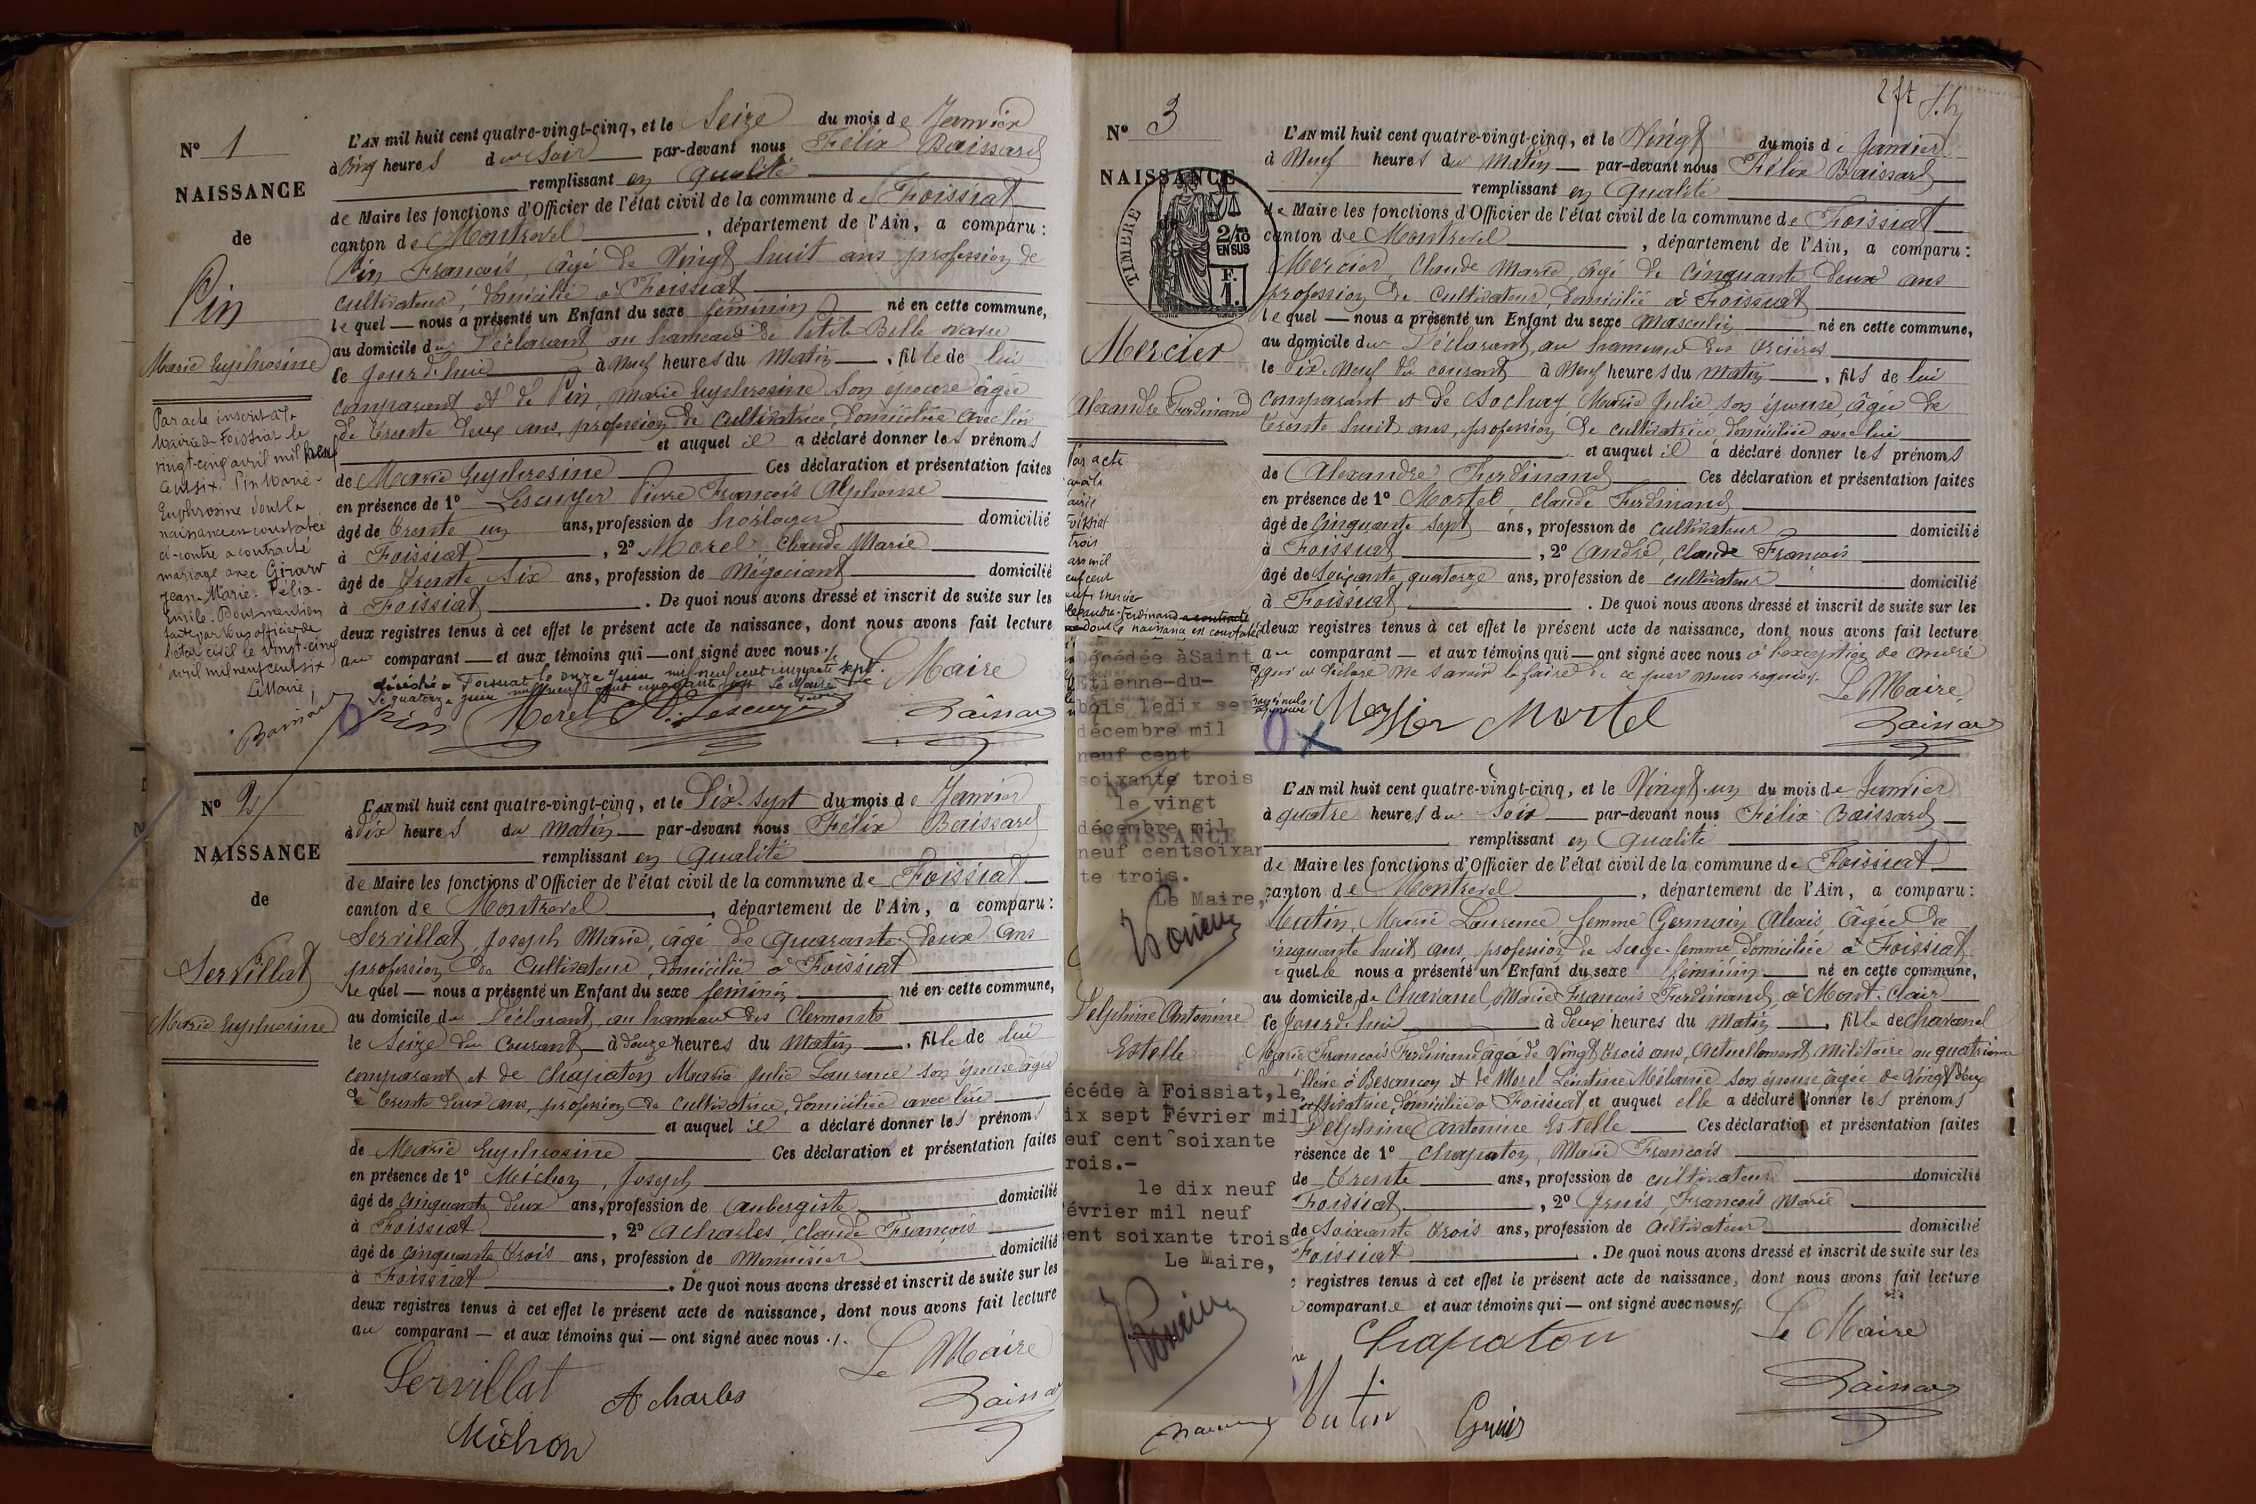 N° 1
NAISSANCE
de
Pin
Marie Euphrosine
Par acte inscrit à la
Mairie de Foissiat le
vingt-cinq avril mil neuf
cent six. Pin Marie-
Euphrosine dont la
naissance en constatée
ci-contre a contracté
mariage avec Girard
Jean-Marie-Félix-
Emile. Dont mention
faite par nous officier de
l'état civil le vingt-cinq
avril mil neuf cent six
Le Maire,
L'AN mil huit cent quatre-vingt-cinq, et le Seize du mois de Janvier
à Cinq heures du Soir par-devant nous Félix Baissard
remplissant en qualité
de Maire les fonctions d'Officier de l'état civil de la commune de Foissiat
canton de Montrevel, département de l'Ain, a comparu :
Pin François, âgé de Vingt huit ans profession de
cultivateur, domicilié à Foissiat
lequel — nous a présenté un Enfant du sexe féminin né en cette commune,
au domicile du Déclarant au hameau de Petite Belle
le jourd'hui à Neuf heures du Matin, fille de lui
comparant et de Pin, Marie Euphrosine son épouse âgée
de trente deux ans, profession de cultivatrice, domiciliée avec lui
et auquel il a déclaré donner les prénoms
de Marie Euphrosine Ces déclaration et présentation faites
en présence de 1° Lescuyer Pierre François Alphonse
âgé de trente un ans, profession de horloger domicilié
à Foissiat, 2° Morel Claude Marie
âgé de trente Six ans, profession de Négociant domicilié
à Foissiat. De quoi nous avons dressé et inscrit de suite sur les
deux registres tenus à cet effet le présent acte de naissance, dont nous avons fait lecture
au comparant — et aux témoins qui — ont signé avec nous ./.
décédée à Foissiat le onze juin mil neuf cent cinquante sept.
Le quatorze juin mil neuf cent cinquante sept Le Maire
Le Maire
Pin Morel A. Lescuyer Baissard
N° 2
NAISSANCE
de
Servillat
Marie Euphrosine
L'AN mil huit cent quatre-vingt-cinq, et le Dix-Sept du mois de Janvier
à dix heures du Matin par-devant nous Félix Baissard
remplissant en qualité
de Maire les fonctions d'Officier de l'état civil de la commune de Foissiat
canton de Montrevel, département de l'Ain, a comparu :
Servillat, Joseph Marie, âgé de quarante deux ans
profession de Cultivateur, domicilié à Foissiat
lequel — nous a présenté un Enfant du sexe féminin né en cette commune,
au domicile du Déclarant au hameau des Clermonts
le Seize du Courant à douze heures du Matin, fille de lui
comparant et de Chapaton Marie Julie Laurence son épouse âgée
de trente deux ans, profession de cultivatrice, domiciliée avec lui
et auquel il a déclaré donner les prénoms
de Marie Euphrosine Ces déclaration et présentation faites
en présence de 1° Michon, Joseph
âgé de cinquante deux ans, profession de aubergiste domicilié
à Foissiat, 2° Acharles, Claude François
âgé de cinquante trois ans, profession de Menuisier domicilié
à Foissiat. De quoi nous avons dressé et inscrit de suite sur les
deux registres tenus à cet effet le présent acte de naissance, dont nous avons fait lecture
au comparant — et aux témoins qui — ont signé avec nous ./.
Le Maire
Servillat Acharles Baissard
Michon
N° 3
NAISSANCE
TIMBRE
2/10
EN SUS
Mercier
Alexandre Ferdinand
Par acte
trois
Ferdinand a contracté
dont la naissance en constatée
L'AN mil huit cent quatre-vingt-cinq, et le Vingt du mois de Janvier
à Neuf heures du Matin par-devant nous Félix Baissard
remplissant en qualité
de Maire les fonctions d'Officier de l'état civil de la commune de Foissiat
canton de Montrevel, département de l'Ain, a comparu :
Mercier, Claude Marie, âgé de cinquante deux ans
profession de Cultivateur, domicilié à Foissiat
lequel — nous a présenté un Enfant du sexe masculin né en cette commune,
au domicile du Déclarant, au hameau des
le Dix-Neuf du courant à Neuf heures du Matin, fils de lui
comparant et de Sochay Marie Julie son épouse, âgée de
trente huit ans, profession de cultivatrice domiciliée avec lui
et auquel il a déclaré donner les prénoms
de Alexandre Ferdinand Ces déclaration et présentation faites
en présence de 1° Mortel, Claude Ferdinand
âgé de Cinquante Sept ans, profession de cultivateur domicilié
à Foissiat, 2° André, Claude François
âgé de Soixante quatorze ans, profession de cultivateur domicilié
à Foissiat. De quoi nous avons dressé et inscrit de suite sur les
deux registres tenus à cet effet le présent acte de naissance, dont nous avons fait lecture
au comparant — et aux témoins qui — ont signé avec nous à l'exception de André
qui a déclaré ne savoir le faire de ce par nous requis ./.
Le Maire
Mercier Mortel Baissard
Décédée à Saint
Etienne-du-
bois ledix sept
décembre mil
neuf cent
soixante trois
le vingt
décembre mil
NAISSANCE
neuf centsoixan
te trois.
Le Maire,
Delphine Antonine
Estelle
écéde à Foissiat,le
ix sept Février mil
euf cent soixante
rois.-
le dix neuf
évrier mil neuf
ent soixante trois
Le Maire,
L'AN mil huit cent quatre-vingt-cinq, et le Vingt-un du mois de Janvier
à quatre heures du Soir par-devant nous Félix Baissard
remplissant en qualité
de Maire les fonctions d'Officier de l'état civil de la commune de Foissiat
canton de Montrevel, département de l'Ain, a comparu :
Mutin, Marie Laurence, femme Germain Alexis, âgée de
inquante huit ans, profession de Sage-femme, domiciliée à Foissiat
quelle nous a présenté un Enfant du sexe féminin né en cette commune,
au domicile de Chavanel, Marie François Ferdinand, à Mont-Clair
le Jourd'hui à deux heures du Matin, fille de Chavanel
Marie François Ferdinand âgé de Vingt trois ans, actuellement militaire au quatrième
illerie à Besançon et de Morel Léontine Mélanie son épouse âgée de Vingt deux
cultivatrice, domiciliée à Foissiat et auquel elle a déclaré donner les prénoms
Delphine Antonine Estelle Ces déclaration et présentation faites
résence de 1° Chapaton, Marie François
de trente ans, profession de cultivateur domicilié
Foissiat, 2° Gruis, François Marie
de Soixante trois ans, profession de Cultivateur domicilié
Foissiat. De quoi nous avons dressé et inscrit de suite sur les
registres tenus à cet effet le présent acte de naissance, dont nous avons fait lecture
comparante et aux témoins qui — ont signé avec nous ./.
Le Maire
Chapaton Baissard
Mutin Gruis